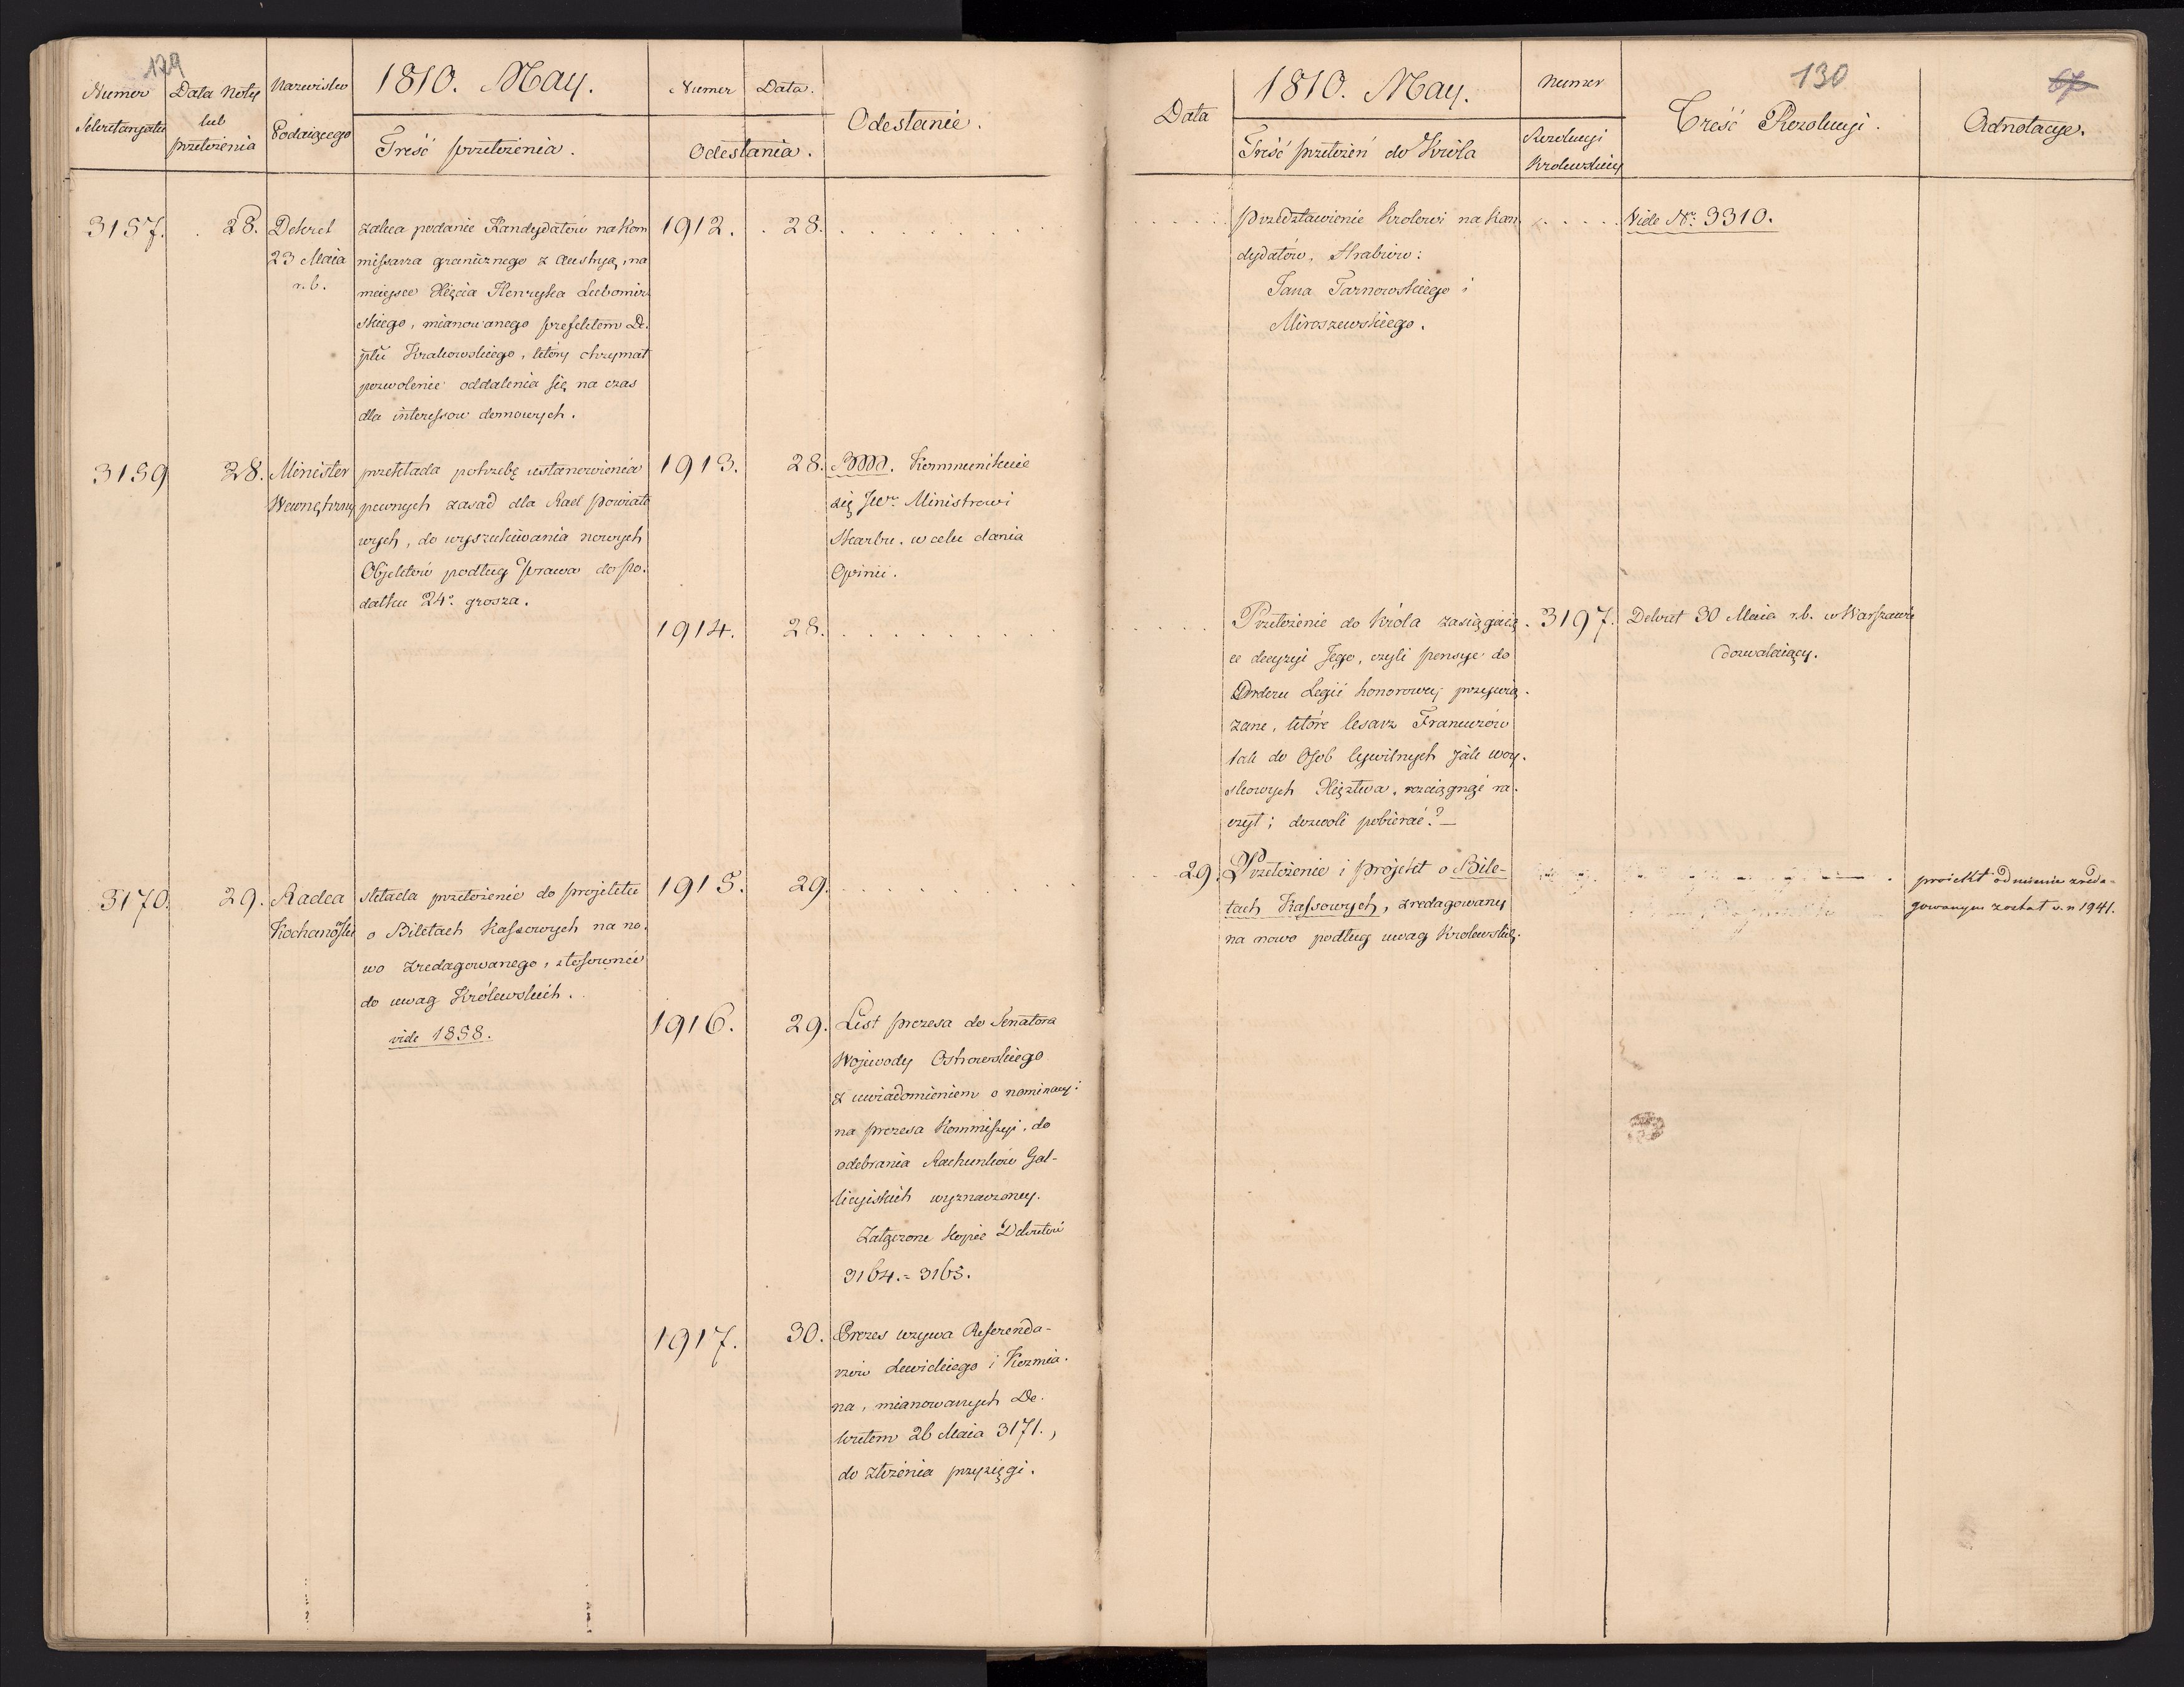 129
Numer Sekretaryatu
Data Noty lub przełożenia
Nazwisko Podaiącego
1810. May.
Treść przełożenia.
Numer Data.
Odesłania.
Odesłanie.
3157. 28. Dekret
23 Maia
r. b.
zaleca podanie Kandydatów na Kom
missarza granicznego z Austryą, na
mieysce Xięcia Henryka Lubomir
skiego, mianowanego prefektem De.
ptu Krakowskiego, który otrzymał
pozwolenie oddalenia się na czas
dla interessow domowych.
1912. 28.
3159 28. Minister
Wewnętrzny
przekłada potrzebę ustanowienia
pewnych zasad dla Rad Powiato
wych, do wyszukiwania nowych
Objektów podług Prawa do Po.
datku 24º. grosza.
1913. 28.
Kommunikuie
się JW. Ministrowi
Skarbu. w celu dania
Opinii.
1914. 28.
3170. 29. Radca
Kochanoski
składa przełożenie do projektu
o Biletach Kassowych na no.
wo zredagowanego, stosownie
do uwag Królewskich.
vide 1858.
1915. 29.
1916. 29. List prezesa do Senatora
Wojewody Ostrowskiego
z uwiadomieniem o nominacyi
na prezesa Kommissyi, do
odebrania Rachunków Gal-
licyiskich wyznaczoney.
Załączone kopie Dekretów
3164. = 3165.
1917. 30. Prezes wzywa Referenda-
rzów Lewickiego i Kozmia.
na, mianowanych De.
kretem 26 Maia 3171.,
do złożenia przysięgi.
130
67
Data
1810. May.
Treść przełożeń do Króla
Numer
Rezolucyi
Krolewskiey
Treść Rezolucyi.
Adnotacye.
przedstawienie Krolowi na Kan
dydatów, Hrabiow:
Jana Tarnowskiego i
Miroszewskiego.
Vide Nr. 3310.
Przełożenie do Króla zasiągaią.
ce decyzyi Jego, czyli pensye do
Orderu Legii honorowey przywią.
zane, które Cesarz Francuzów
tak do Osob Cywilnych jak woy.
skowych Xięztwa, rozciągnąć ra.
czył; dozwoli pobierać? —
3197. Dekret 30 Maia r. b. w Warszawie
dozwalaiący.
29. Przełożenie i projekt o Bile-
tach Kassowych, zredagowany
na nowo podług uwag Krolewskich.
proiekt odmiennie zreda-
gowanym został v. n 1941.